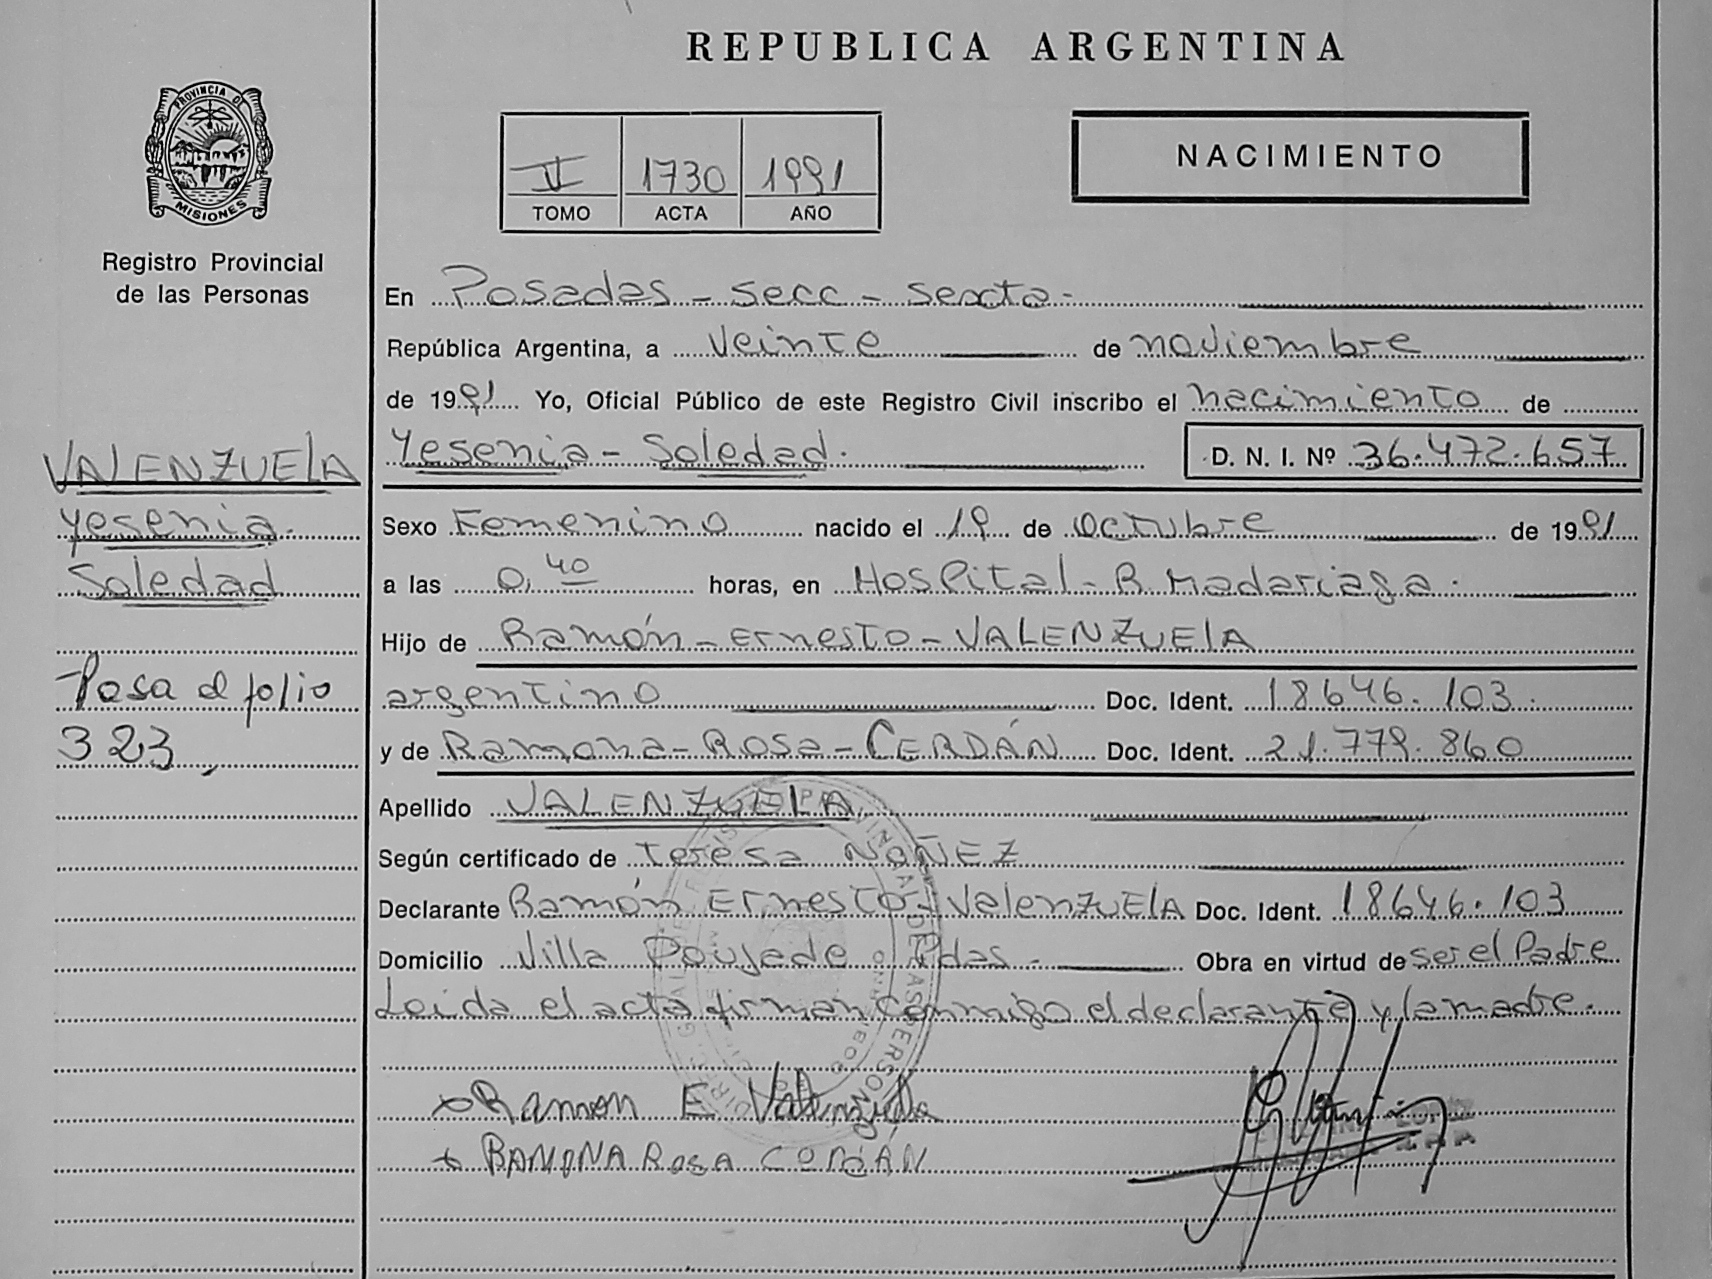 REPUBLICA ARGENTINA
PROVINCIA DE
MISIONES
Registro Provincial
de las Personas
II 1730 1991
TOMO ACTA AÑO
NACIMIENTO
En Posadas - secc - sexta -
República Argentina, a veinte de noviembre
de 1991 Yo, Oficial Público de este Registro Civil inscribo el nacimiento de
Yesenia - Soledad. D. N. I. Nº 36.472.657
VALENZUELA
Yesenia.
Soledad
Pasa al folio
323
Sexo Femenino nacido el 19 de octubre de 1991
a las 0,40 horas, en Hospital - R. Madariaga.
Hijo de Ramón - Ernesto - VALENZUELA
argentino Doc. Ident. 18646.103.
y de Ramona - Rosa - CERDÁN Doc. Ident. 21.779.860
Apellido VALENZUELA
Según certificado de Teresa NÚÑEZ
Declarante Ramón Ernesto - ValenzUElA Doc. Ident. 18646.103
Domicilio Villa Poujade Pdas. - Obra en virtud de ser el Padre
Leida el acta firman conmigo el declarante y la madre.
Ramon E Valenzuela
RAMONA ROSA CERDÁN